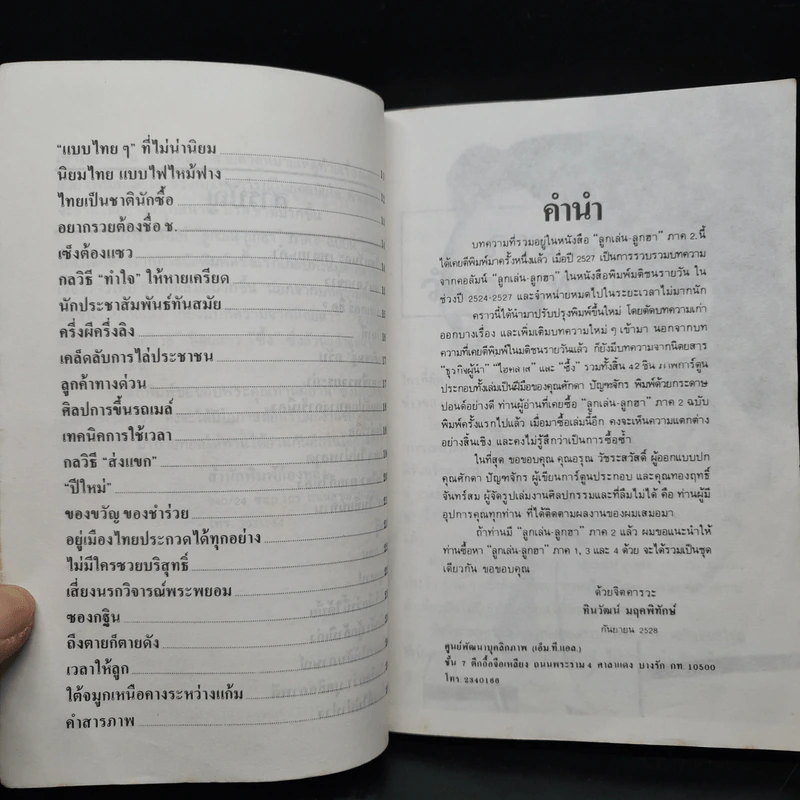 "แบบไทย ๆ" ที่ไม่น่านิยม
นิยมไทย แบบไฟไหม้ฟาง
ไทยเป็นชาตินักซื้อ
อยากรวยต้องชื่อ ช.
เซ็งต้องแซว
กลวิธี "ทำใจ" ให้หายเครียด
นักประชาสัมพันธ์ทันสมัย
ครึ่งผีครึ่งลิง
เคล็ดลับการไล่ประชาชน
ลูกค้าทางด่วน
ศิลปการขึ้นรถเมล์
เทคนิคการใช้เวลา
กลวิธี "ส่งแขก"
"ปีใหม่"
ของขวัญ ของชำร่วย
อยู่เมืองไทยประกวดได้ทุกอย่าง
ไม่มีใครซวยบริสุทธิ์
เสี่ยงนรกวิจารณ์พระพยอม
ซองกฐิน
ถึงตายก็ตายดัง
เวลาให้ลูก
ใต้จมูกเหนือคางระหว่างแก้ม
คำสารภาพ
คำนำ
บทความที่รวมอยู่ในหนังสือ "ลูกเล่น-ลูกฮา" ภาค 2 นี้
ได้เคยตีพิมพ์มาครั้งหนึ่งแล้ว เมื่อปี 2527 เป็นการรวบรวมบทความ
จากคอลัมน์ "ลูกเล่น-ลูกฮา" ในหนังสือพิมพ์มติชนรายวัน ใน
ช่วงปี 2524-2527 และจำหน่ายหมดไปในระยะเวลาไม่มากนัก
คราวนี้ได้นำมาปรับปรุงพิมพ์ขึ้นใหม่ โดยตัดบทความเก่า
ออกบางเรื่อง และเพิ่มเติมบทความใหม่ ๆ เข้ามา นอกจากบท
ความที่เคยตีพิมพ์ในมติชนรายวันแล้ว ก็ยังมีบทความจากนิตยสาร
"ธุรกิจผู้นำ" "ไฮคลาส" และ "ซึ้ง" รวมทั้งสิ้น 42 ชิ้น ภาพการ์ตูน
ประกอบทั้งเล่มเป็นฝีมือของคุณศักดา ปัญฑจักร พิมพ์ด้วยกระดาษ
ปอนด์อย่างดี ท่านผู้อ่านที่เคยซื้อ "ลูกเล่น-ลูกฮา" ภาค 2 ฉบับ
พิมพ์ครั้งแรกไปแล้ว เมื่อมาซื้อเล่มนี้อีก คงจะเห็นความแตกต่าง
อย่างสิ้นเชิง และคงไม่รู้สึกว่าเป็นการซื้อซ้ำ
ในที่สุด ขอขอบคุณ คุณอรุณ วัชระสวัสดิ์ ผู้ออกแบบปก
คุณศักดา ปัญฑจักร ผู้เขียนการ์ตูนประกอบ และคุณทองฤทธิ์
จันทร์สม ผู้จัดรูปเล่มงานศิลปกรรมและที่ลืมไม่ได้ คือ ท่านผู้มี
อุปการคุณทุกท่าน ที่ได้ติดตามผลงานของผมเสมอมา
ถ้าท่านมี "ลูกเล่น-ลูกฮา" ภาค 2 แล้ว ผมขอแนะนำให้
ท่านซื้อหา "ลูกเล่น-ลูกฮา" ภาค 1, 3 และ 4 ด้วย จะได้รวมเป็นชุด
เดียวกัน ขอขอบคุณ
ด้วยจิตคารวะ
ทินวัฒน์ มฤคพิทักษ์
กันยายน 2528
ศูนย์พัฒนาบุคลิกภาพ (เอ็ม.ที.แอล.)
ชั้น 7 ตึกอื้อจือเหลียง ถนนพระราม 4 ศาลาแดง บางรัก กท. 10500
โทร 2340166